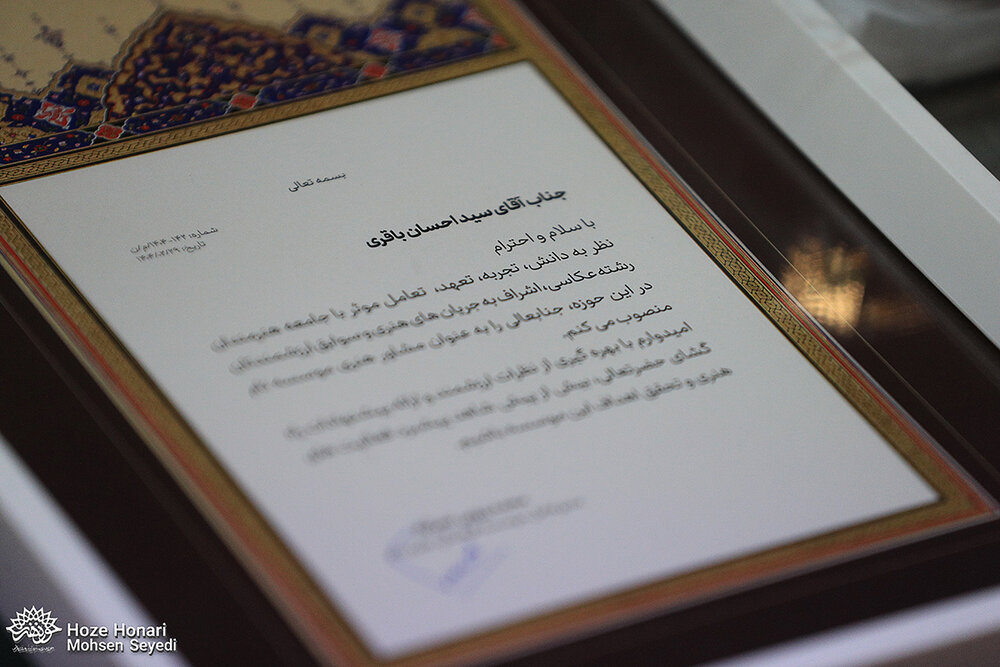 بسمه تعالی
شماره: ۱۴۲-۱۴۰۴/م/ن
تاریخ: ۱۴۰۴/۲/۲۹
جناب آقای سید احسان باقری
با سلام و احترام
نظر به دانش، تجربه، تعهد، تعامل موثر با جامعه هنرمندان
رشته عکاسی، اشراف به جریان های هنری و سوابق ارزشمندتان
در این حوزه، جنابعالی را به عنوان مشاور هنری موسسه
منصوب می کنم.
امیدوارم با بهره گیری از نظرات ارزشمند و ارائه پیشنهادات
گشای حضرتعالی، بیش از پیش شاهد پیشبرد فعالیت های
هنری و تحقق اهداف این موسسه باشیم.
Hoze Honari
Mohsen Seyedi